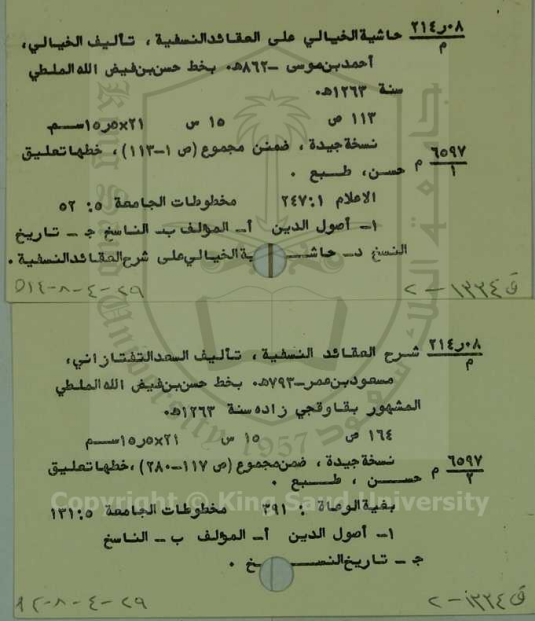 ٢١٤ر٠٨ حاشية الخيالي على العقائد النسفية ، تأليف الخيالي،
م
أحمد بن موسى -٨٦٢هـ. بخط حسن بن فيض الله الملطي
سنة ١٢٦٣هـ.
١١٣ ص ١٥ س ٢١×٥ر١٥ سم
نسخة جيدة ، ضمن مجموع (ص ١-١١٣) ، خطها تعليق
٦٥٩٧ م حسن، طبع .
١
الاعلام ١:٢٤٧ مخطوطات الجامعة ٥: ٥٢
١- أصول الدين أ- المؤلف ب- الناسخ ج - تاريخ
النسخ د- حاشية الخيالي على شرح العقائد النسفية .
ف ١٣٣٤-٢
٢٩-٤-٨-
٢١٤ر٠٨ شرح العقائد النسفية ، تأليف السعد التفتازاني،
م
مسعود بن عمر-٧٩٣هـ. بخط حسن بن فيض الله الملطي
المشهور بقاوقجي زاده سنة ١٢٦٣هـ.
١٦٤ ص ١٥ س ٢١×٥ر١٥ سم
نسخة جيدة ، ضمن مجموع (ص ١١٧-٢٨٠) ، خطها تعليق
٦٥٩٧ م حسن ، طبع .
٢
Copyright © King Saud University
بغية الوعاة : ٣٩١ مخطوطات الجامعة ٥:١٣١
١- أصول الدين أ- المؤلف ب - الناسخ
ج - تاريخ النسخ .
ف ١٣٣٤-٢
٢٩-٤-٨-
King Saud University
1957